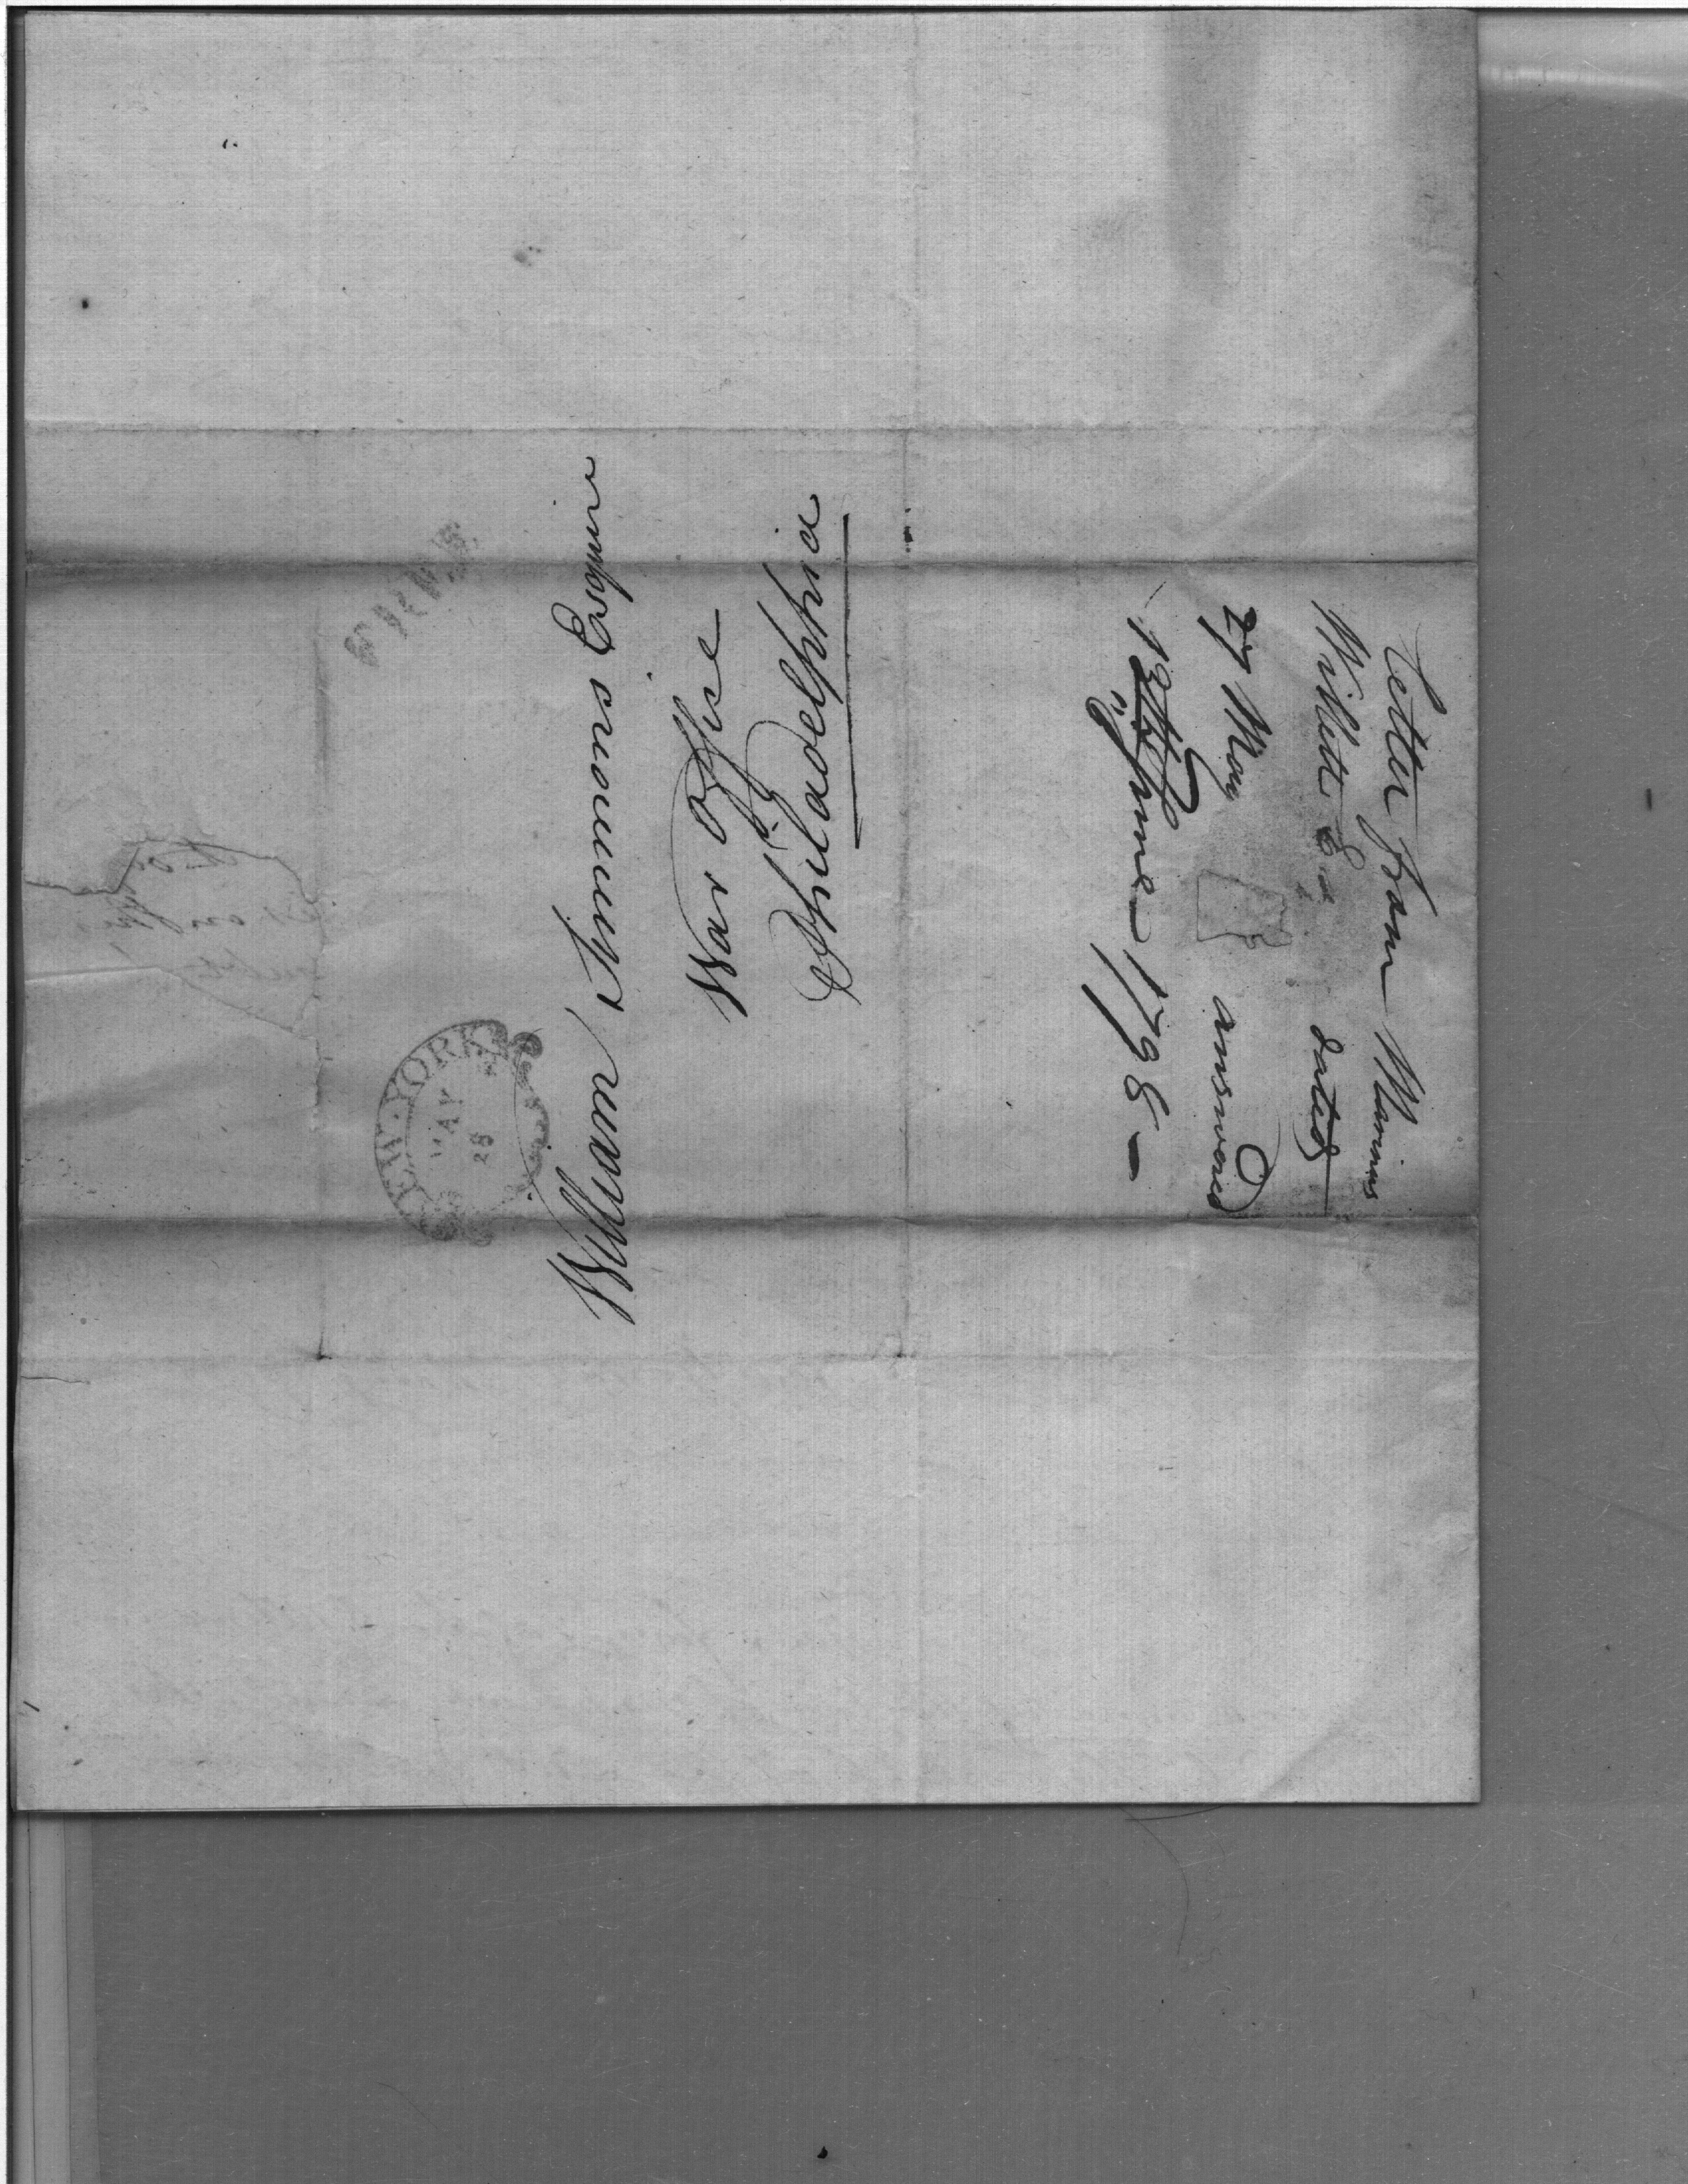 William Simmons Esquire
War Office
Philadelphia
NEW-YORK
MAY
28
Letter from Marinus
Willett Esq
dated
27 May answered
13th June 1798 -